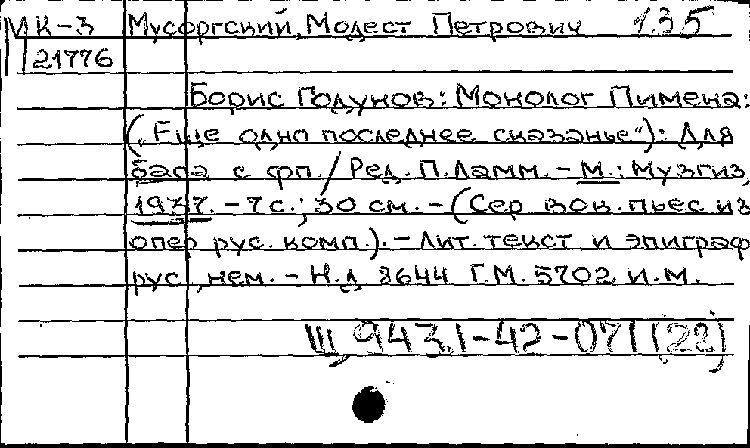 МК-3 Мусоргский, Модест Петрович 135
21776
Борис Годунов: Монолог Пимена:
("Еще одно последнее сказанье"): Для
баса с фп. / Ред. П. Ламм. - М.: Музгиз,
1937. - 7 с.; 30 см. - (Сер вок. пьес из
опер рус. комп.). - Лит. текст и эпиграф
рус, нем. - Н.д 8644 Г.М. 5702 и.м.
Щ 943.1-42-071(22)